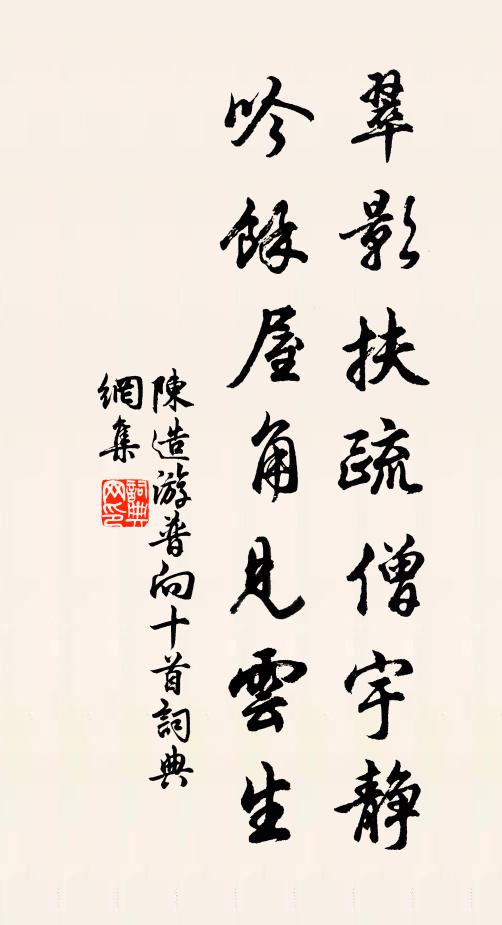 翠影扶疏僧宇静
吟餘屋角見雲生
陳造游普向十首詞典
網集
詞典
网印